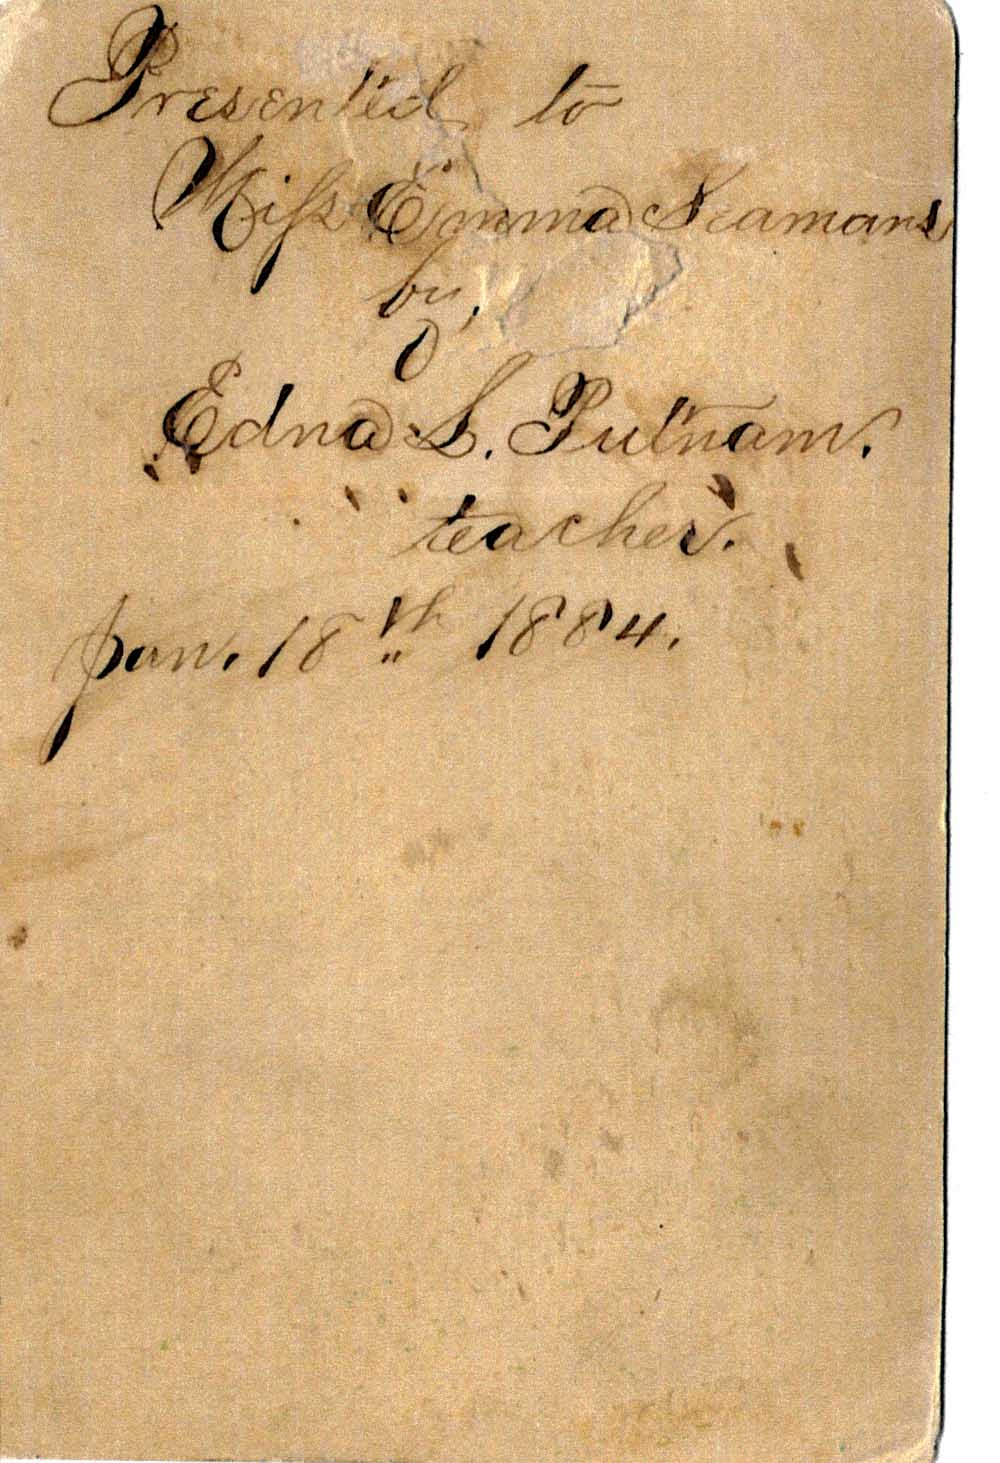 Presented to
Miſs Emma Seamans
by,
Edna S. Putnam.
teacher.
Jan. 18th 1884.